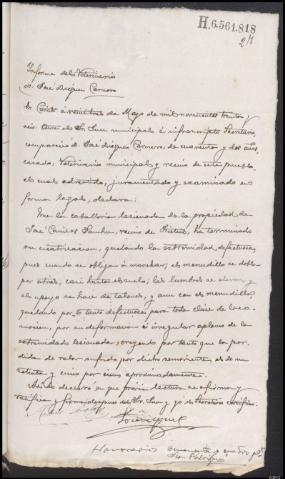 H.6.561.818
Informe del Veterinario
D. José Dieguez Carnero
a veintitres de Mayo de mil novecientos treinta y
ante el Sr. Juez municipal é infrascripto Secretario,
compareció D. José Dieguez Carnero, de cuarenta y dos años,
casado, Veterinario municipal y vecino de este pueblo,
el cual advertido, juramentado y examinado en
forma legal, declara:
Que la caballería lesionada de la propiedad de
José Sanchez, vecino de ha terminado
su cicatrización, quedando la extremidad defectuosa,
pues cuando se obliga á marchar, el menudillo se dobla
por atrás, casi hasta el suelo, las lumbres se elevan y
el apoyo se hace de talones, y aun con el menudillo,
quedando por lo tanto defectuosa para toda clase de loco-
moción, por su deformación é irregular aplomo de la
extremidad lesionada; creyendo por tanto que la per-
dida de valor sufrida por dicho semoviente, es de
y cinco por cien aproximadamente.
Así lo declaró en que previa lectura se afirma y
ratifica y firma despues del Sr. Juez y yo Secretario certifico.
Honorarios cincuenta y cuatro pts.